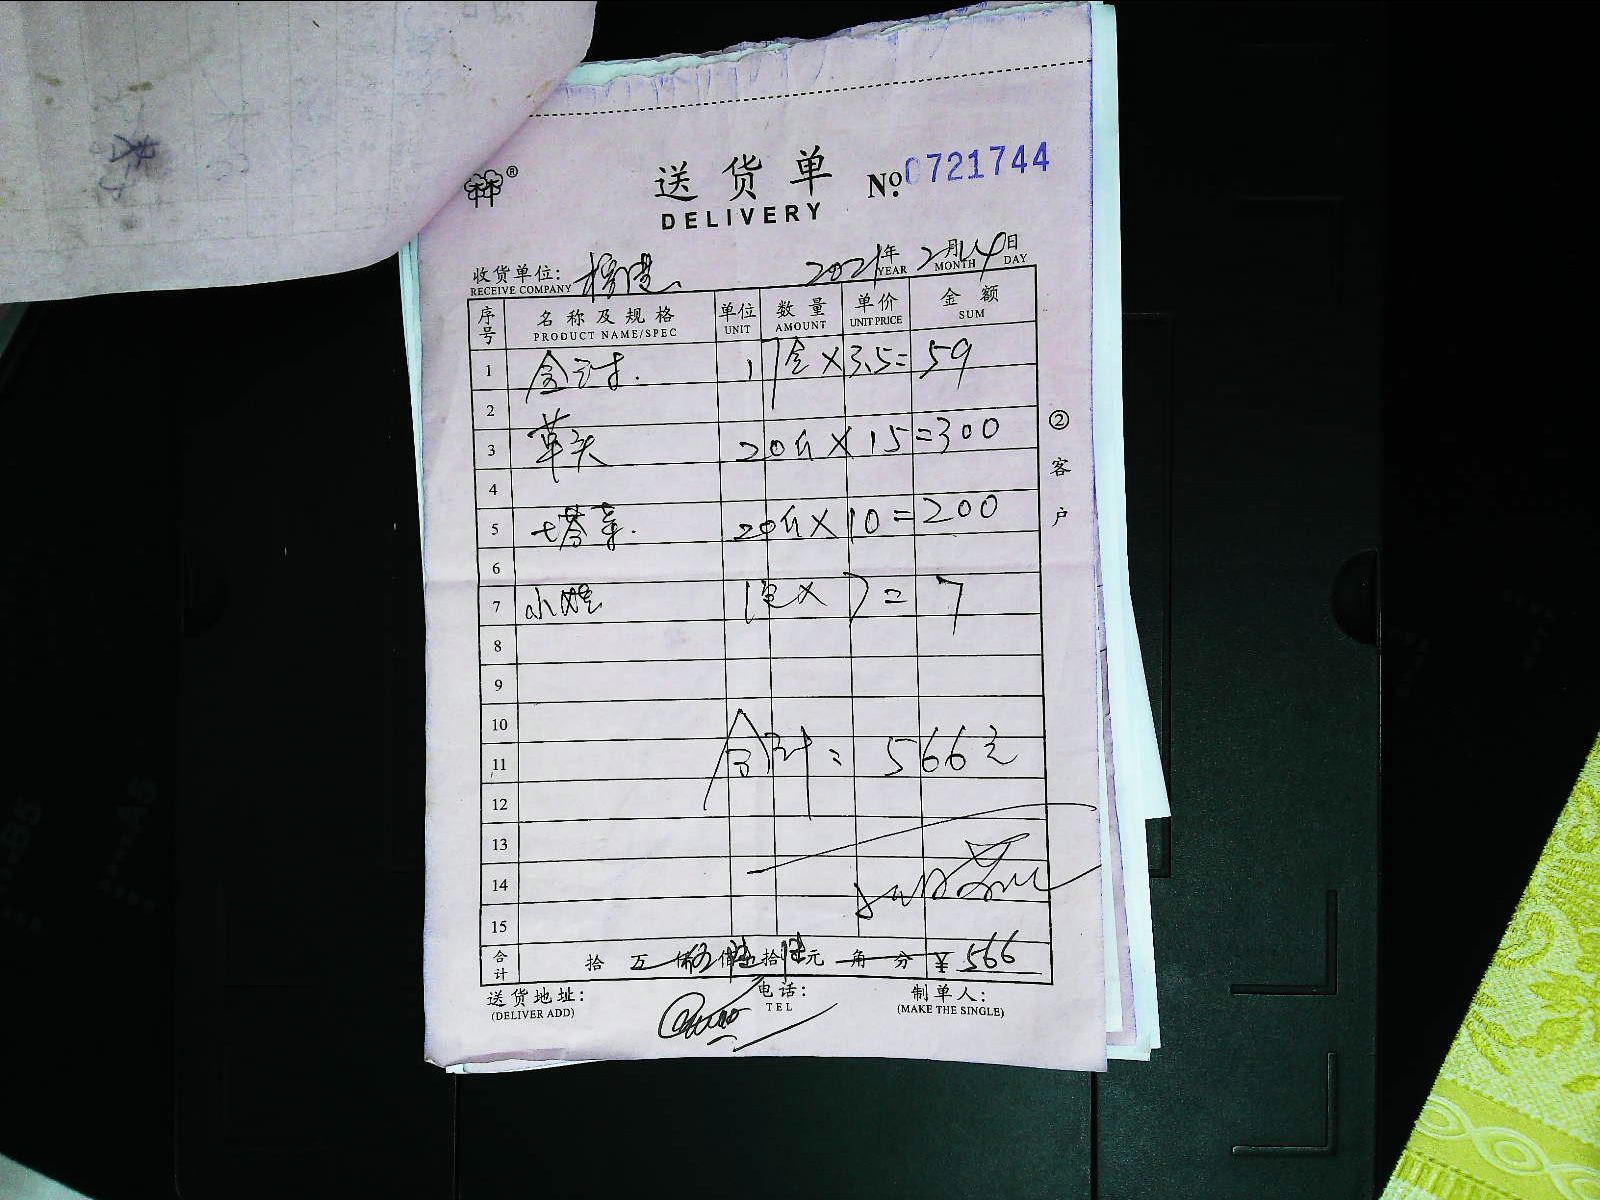 送货单
DELIVERY
No. 0721744
收货单位:
RECEIVE COMPANY
2021年 2月14日
YEAR MONTH DAY
序号 名称及规格 单位 数量 单价 金额
PRODUCT NAME/SPEC UNIT AMOUNT UNIT PRICE SUM
1 17盒×3.5=59
2
3 草头 20斤×15=300
4
5 七塔菜 20斤×10=200
6
7 1包×7=7
8
9
10
11 合计: 566元
12
13
14
15
合计 拾 万 仟伍佰陆拾陆元 角 分 ¥566
送货地址: 电话: 制单人:
(DELIVER ADD) TEL (MAKE THE SINGLE)
②客户